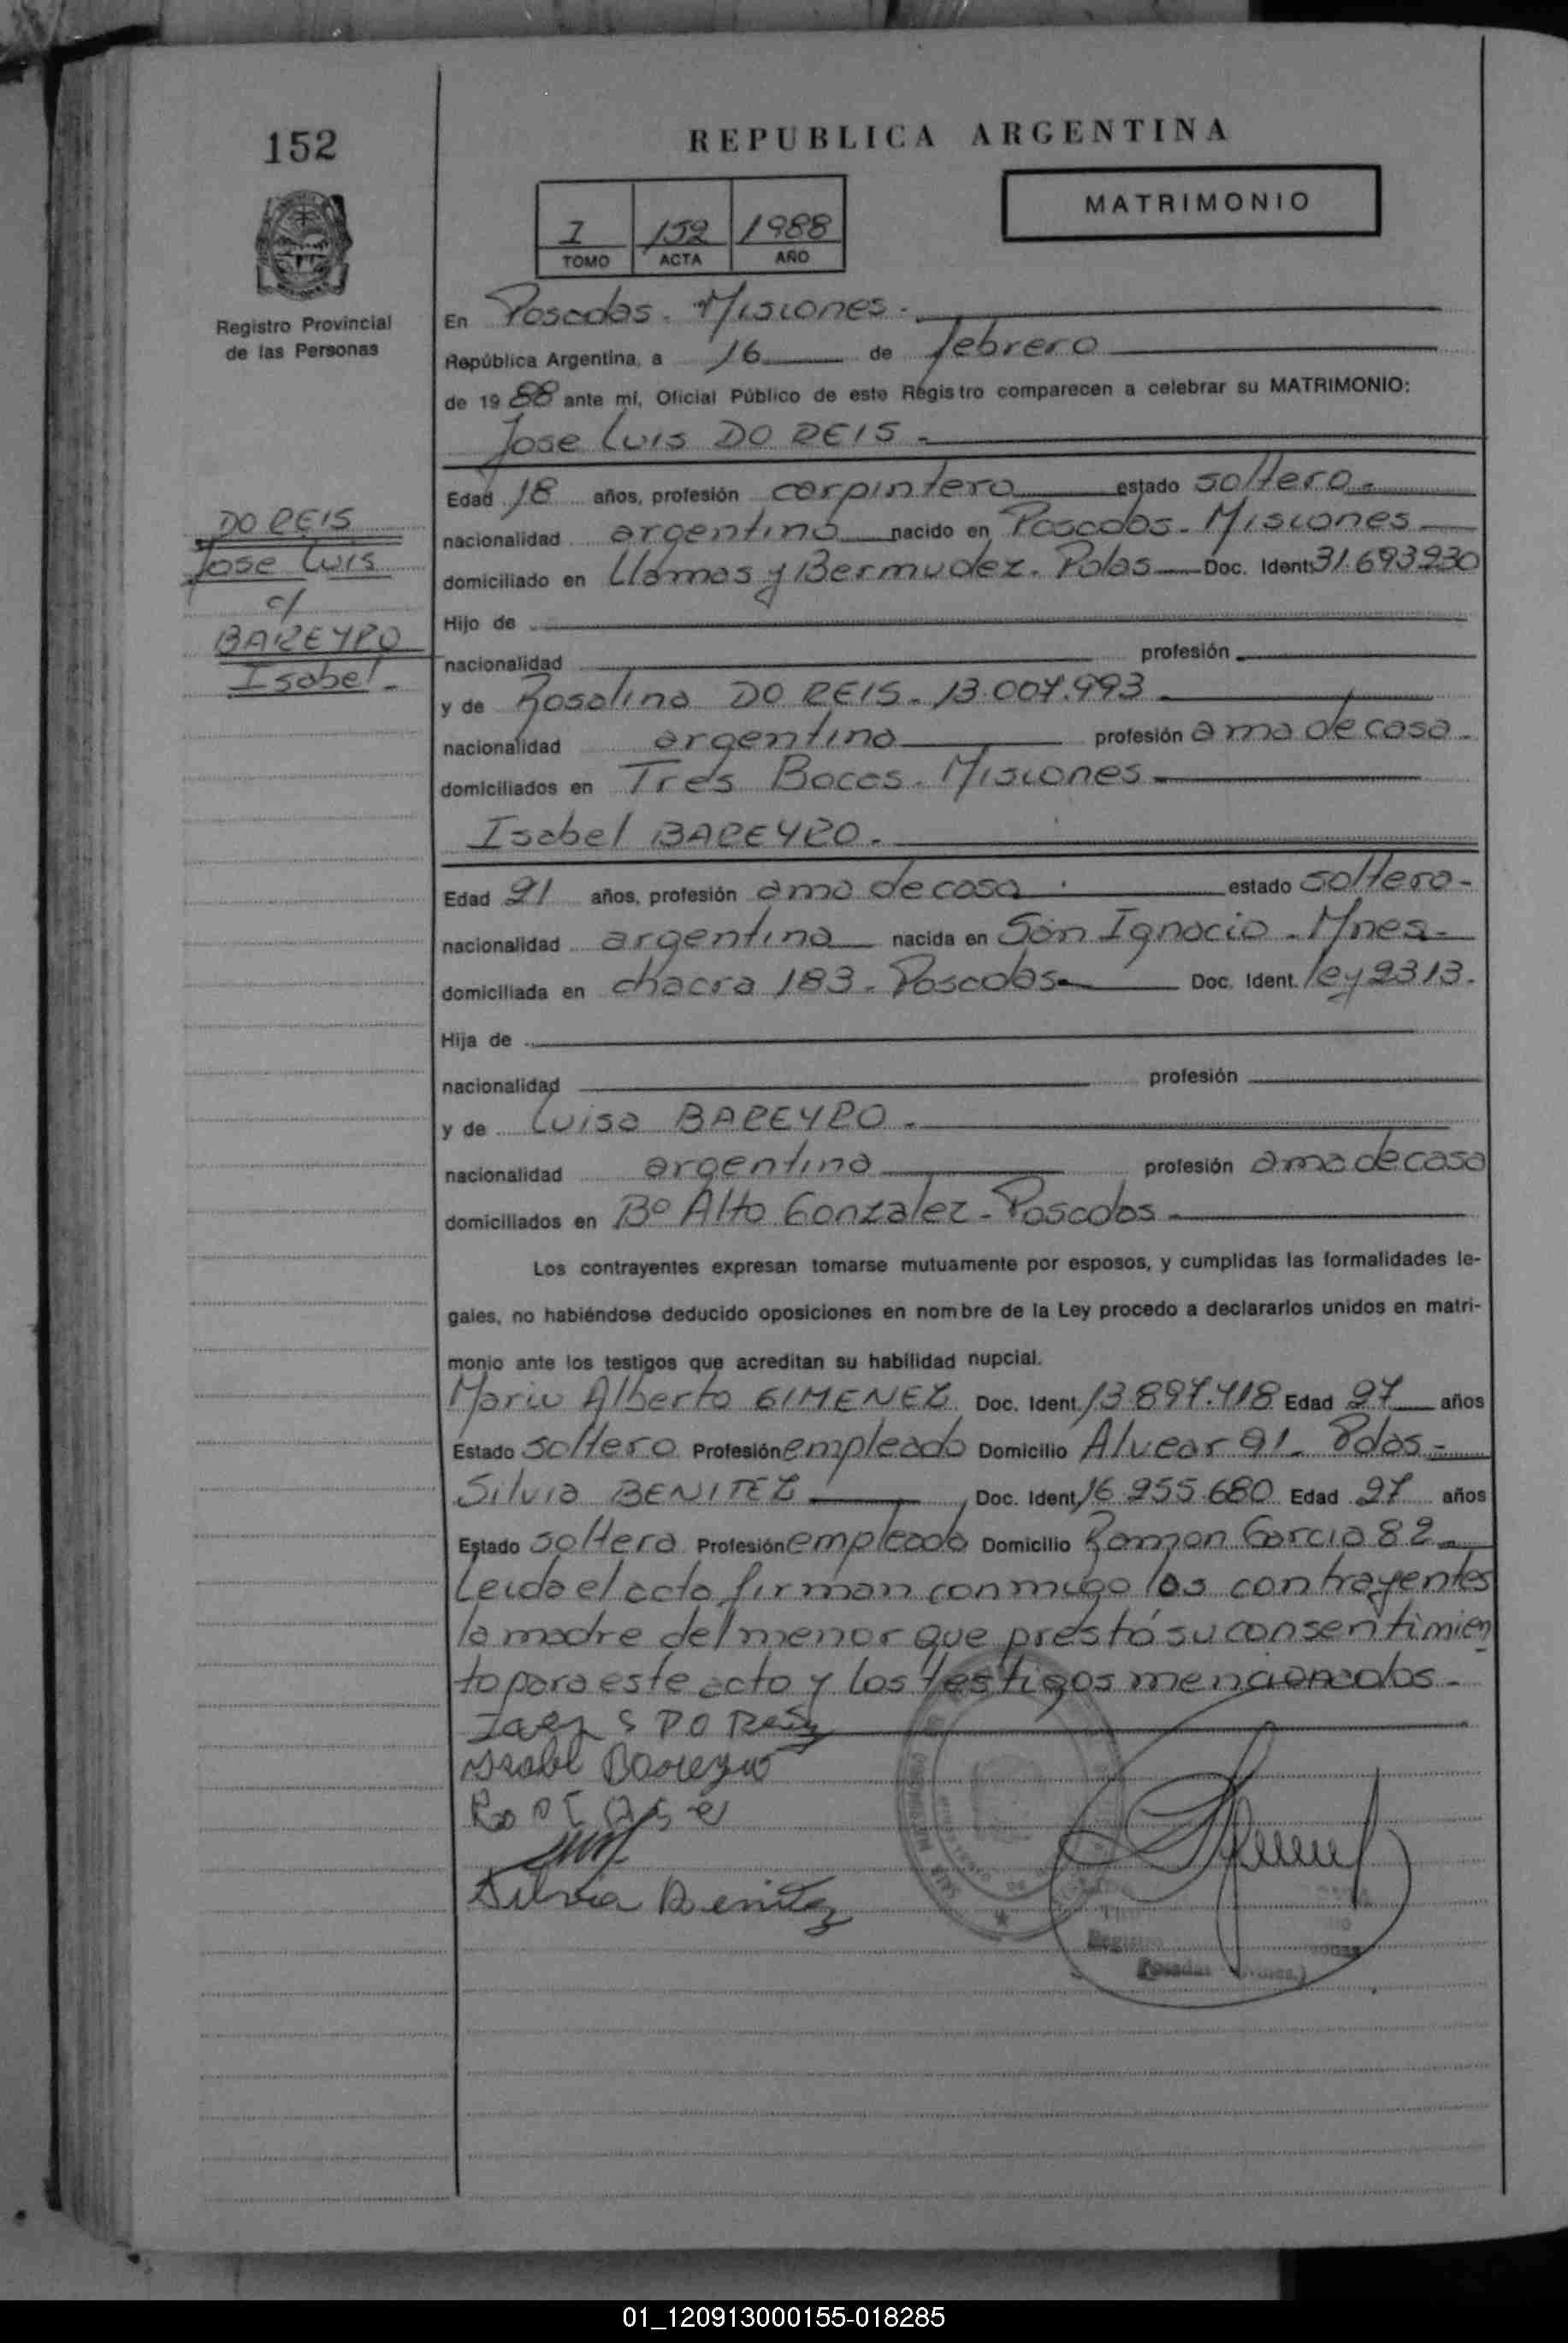 152
REPUBLICA ARGENTINA
MATRIMONIO
I 152 1988
TOMO ACTA AÑO
Registro Provincial
de las Personas
En Posadas. Misiones.
República Argentina, a 16 de febrero
de 1988 ante mí, Oficial Público de este Registro comparecen a celebrar su MATRIMONIO:
Jose Luis DO REIS.
Edad 18 años, profesión carpintero estado soltero.
nacionalidad argentino nacido en Posadas. Misiones
domiciliado en Llamas y Bermudez. Pdas Doc. Ident. 31.693.930
DO REIS
Jose Luis
c/
BAREYRO
Isabel.
Hijo de
nacionalidad profesión
y de Rosalina DO REIS. 13.007.993
nacionalidad argentina profesión ama de casa.
domiciliados en Tres Bocas. Misiones
Isabel BAREYRO.
Edad 21 años, profesión ama de casa estado soltera.
nacionalidad argentina nacida en San Ignacio. Mnes.
domiciliada en chacra 183. Posadas Doc. Ident. ley 2313.
Hija de
nacionalidad profesión
y de Luisa BAREYRO.
nacionalidad argentina profesión ama de casa
domiciliados en Bº Alto Gonzalez. Posadas.
Los contrayentes expresan tomarse mutuamente por esposos, y cumplidas las formalidades le-
gales, no habiéndose deducido oposiciones en nombre de la Ley procedo a declararlos unidos en matri-
monio ante los testigos que acreditan su habilidad nupcial.
Mario Alberto GIMENEZ Doc. Ident. 13.897.418 Edad 27 años
Estado soltero Profesión empleado Domicilio Alvear 91. Pdas.
Silvia BENITEZ Doc. Ident. 16.955.680 Edad 27 años
Estado soltera Profesión empleada Domicilio Ramon Garcia 82.
Leida el acta firman conmigo los contrayentes
la madre del menor que prestó su consentimien
to para este acto y los testigos mencionados.
DO Reis
Isabel Bareyro
Silvia Benitez
Registro
Posadas
01_120913000155-018285